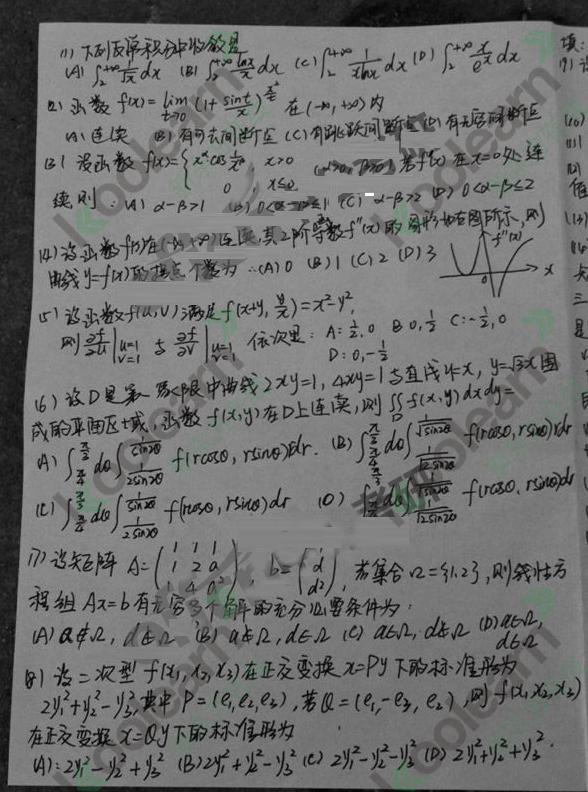 (1) 下列反常积分中收敛是
(A) ∫₂^{+∞} 1/√x dx (B) ∫₂^{+∞} lnx/x dx (C) ∫₂^{+∞} 1/(xlnx) dx (D) ∫₂^{+∞} x/e^x dx
(2) 函数 f(x)= lim_{t→0} (1+ sint/x)^{x²/t} 在 (-∞,+∞) 内
(A) 连续 (B) 有可去间断点 (C) 有跳跃间断点 (D) 有无穷间断点
(3) 设函数 f(x)= { x^α cos 1/x^β, x>0
0, x≤0 (α>0, β>0) 若f'(x) 在 x=0 处连
续则: (A) α-β>1 (B) 0<α-β≤1 (C) α-β>2 (D) 0<α-β≤2
(4) 设函数f(x)在(-∞,+∞)连续,其2阶导数f''(x)的图形如右图所示,则
曲线y=f(x)的拐点个数为: (A) 0 (B) 1 (C) 2 (D) 3
f''(x)
0 x
(5) 设函数f(u,v)满足f(x+y, y/x)=x²-y²,
则 ∂f/∂u|u=1 v=1 与 ∂f/∂v|u=1 v=1 依次是: A: 1/2, 0 B 0, 1/2 C: -1/2, 0
D: 0, -1/2
(6) 设D是第一象限中曲线2xy=1, 4xy=1与直线y=x, y=√3x围
成的平面区域,函数f(x,y)在D上连续,则 ∬_D f(x,y)dxdy=
(A) ∫_{π/4}^{π/3} dθ ∫_{1/2sin2θ}^{1/sin2θ} f(rcosθ, rsinθ)rdr. (B) ∫_{π/4}^{π/3} dθ ∫_{1/√2sin2θ}^{1/√sin2θ} f(rcosθ, rsinθ)rdr
(C) ∫_{π/4}^{π/3} dθ ∫_{1/2sin2θ}^{1/sin2θ} f(rcosθ, rsinθ)dr (D) ∫_{π/4}^{π/3} dθ ∫_{1/√2sin2θ}^{1/√sin2θ} f(rcosθ, rsinθ)dr
(7) 设矩阵 A=(1 1 1
1 2 a
1 4 a²), b=(1
d
d²), 若集合Ω={1,2}, 则线性方
程组Ax=b有无穷多个解的充分必要条件为:
(A) a∉Ω, d∉Ω (B) a∉Ω, d∈Ω (C) a∈Ω, d∉Ω (D) a∈Ω,
d∈Ω
(8) 设二次型f(x₁,x₂,x₃)在正交变换x=Py下的标准形为
2y₁²+y₂²-y₃²,其中P=(e₁,e₂,e₃),若Q=(e₁,-e₃,e₂),则f(x₁,x₂,x₃)
在正交变换x=Qy下的标准形为
(A): 2y₁²-y₂²+y₃² (B) 2y₁²+y₂²-y₃² (C) 2y₁²-y₂²-y₃² (D) 2y₁²+y₂²+y₃².
填:
(10)
(11)
值
koolearn